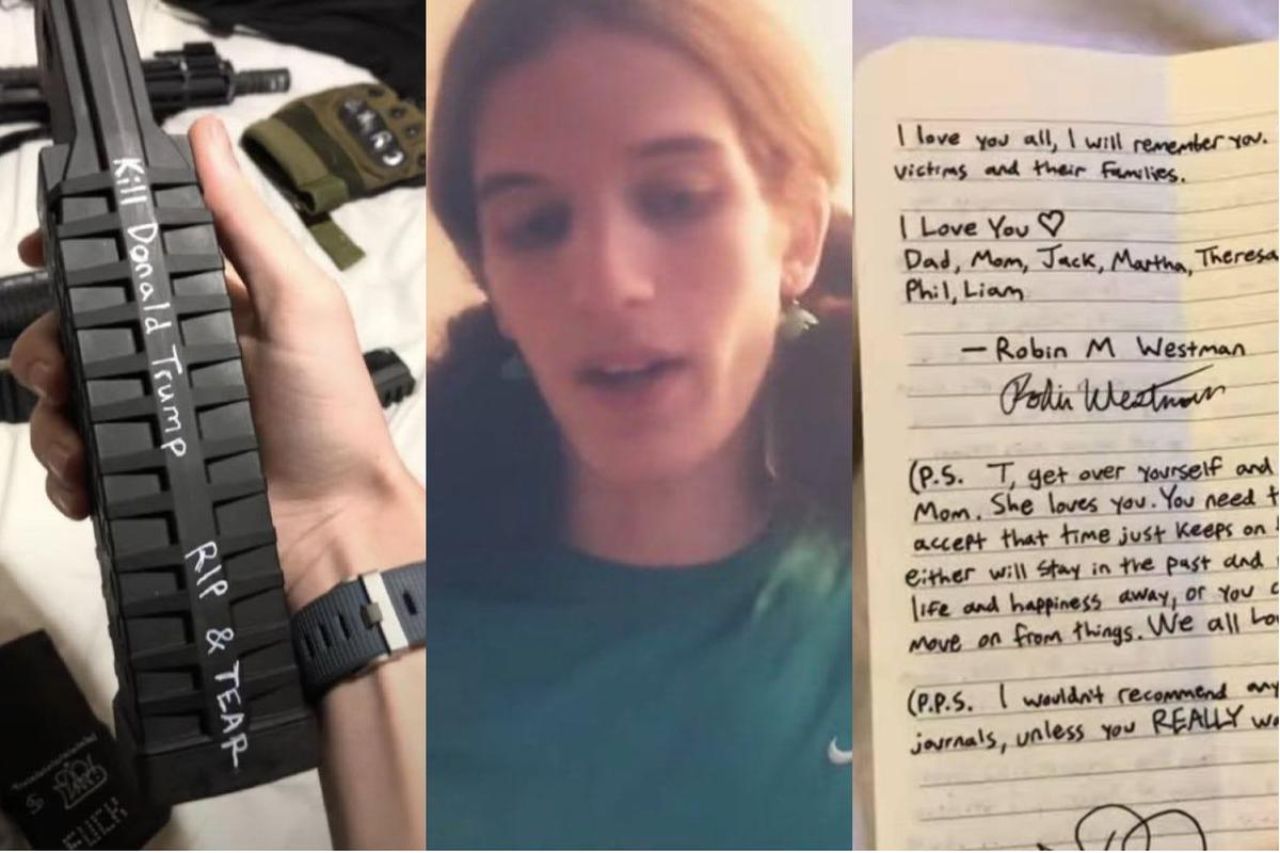 Kill Donald Trump
RIP & TEAR
FUCK
I love you all, I will remember you.
victims and their families.
I Love You ♡
Dad, Mom, Jack, Martha, Theresa
Phil, Liam
— Robin M Westman
Robin Westman
(P.S. T, get over yourself and
Mom. She loves you. You need
accept that time just keeps on
either will stay in the past and
life and happiness away, or you
move on from things. We all
(P.P.S. I wouldn't recommend any
journals, unless you REALLY